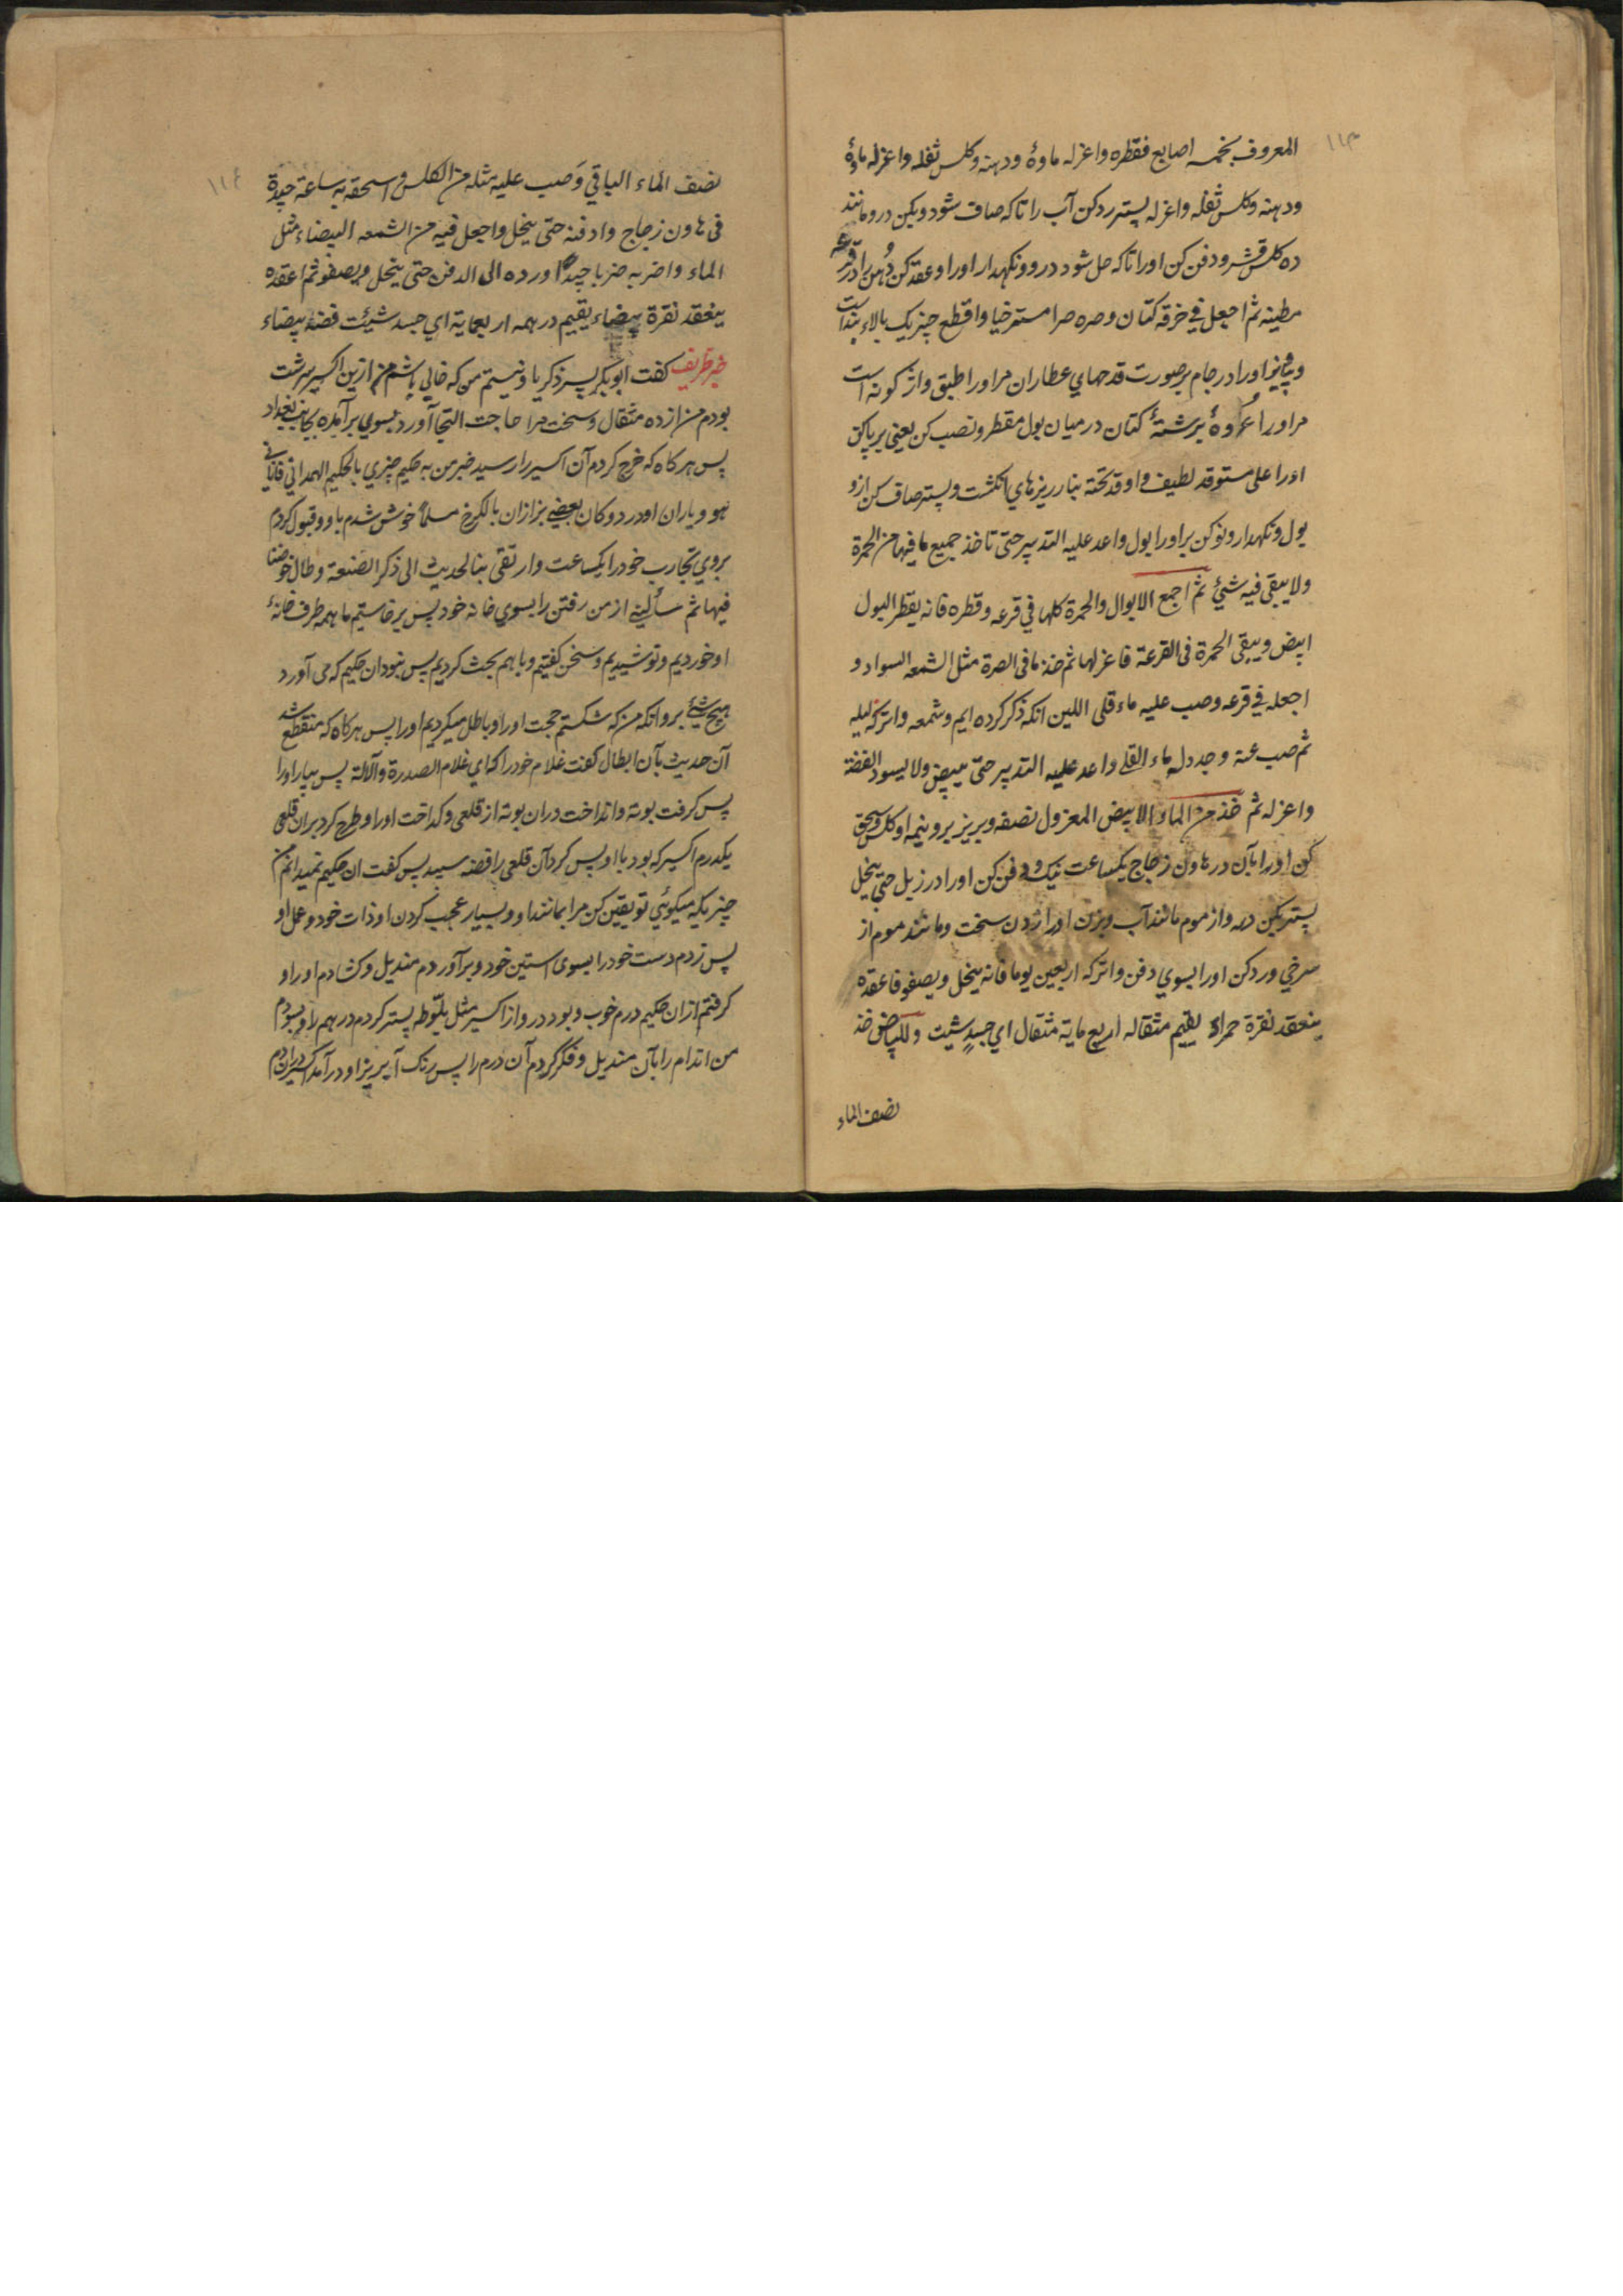 ١١٣
المعروف بخمسه اصابع فقطره واعزله ماوهٔ ودهنه وکلس ثفله واعزله ماوهٔ
ودهنه وکلس ثفله واعزله پستر ردکن آب را تا که صاف شود وبکن درو مانند
ده کلس قشر ودفن کن اورا تا که حل شود درو ونکهدار اورا وعقد کن دُهن را در قرعه
مطینه ثم اجعل فی خرقه کتان وصره صرا مسترخیا واقطع چیزیک بالاء بنداست
اورا در جام بر صورت قدحهای عطاران مر اورا طبقی واژ کونه است
مر اورا عُروهٔ برشتهٔ کتان در میان بول مقطر ونصب کن یعنی بر پا کن
اورا علی مستوقد لطیف واوقد تحته بنار ریزهای انکشت وپستر صاف کن ازو
بول ونکهدار ونو کن بر اورا بول واعد علیه التدبیر حتی تاخذ جمیع ما فیها من الحمرة
ولا یبقی فیه شیٔ ثم اجمع الابوال والحمرة کلها فی قرعه وقطره فانه یقطر البول
ابیض ویبقی الحمرة فی القرعة فاعزلها ثم خذ ما فی الصرة مثل الشمعه السواد و
اجعله فی قرعه وصب علیه ماء قلی اللین انکه ذکر کرده ایم وشمعه واترکه لیله
ثم صب عنه وجدد له ماء القلی واعد علیه التدبیر حتی یبیض ولا یسود الفضة
واعزله ثم خذ من الماء الابیض المعزول نصفه وبریز برو نیمه او کلس وسحق
کن اورا بآن در هاون زجاج یکساعت نیک ودفن کن اورا در زبل حتی ینحل
پستر بکن درو از موم مانند آب وبزن اورا زدن سخت ومانند موم از
سرخی ورد کن اورا بسوی دفن واترکه اربعین یوما فانه ینحل ویصفو فاعقده
ینعقد نقرة حمراء یقیم مثقاله اربع مایة مثقال ای جسدٍ شیت وللبیاض خذ
نصف الماء
١١٤
نصف الماء الباقی وَصب علیه مثله من الکلس واسحقه به ساعة جیدة
فی هاون زجاج وادفنه حتی ینحل واجعل فیه من الشمعه البیضاء مثل
الماء واضربه ضربا جیدًا ورده الی الدفن حتی ینحل ویصفو ثم اعقده
ینعقد نقرة بیضاء یقیم درهمه اربعمایة ای جسد شیئت فضة بیضاء
خبر ظریف کفت ابوبکر پسر ذکریا ونیستم من که خالی باشم من ازین اکسیر سرشت
بودم من از ده مثقال وسخت مرا حاجت التجا آورد بسوی بر آمدن بجانب بغداد
پس هرکاه که خرج کردم آن اکسیر را رسید خبر من به حکیم چیزی بالحکیم الهمدانی فاتانی
هو ویاران او در دوکان بعضی بزازان بالکرخ مسلماً خوش شدم با او وقبول کردم
بروی تجارب خود را یکساعت وارتقی بنا لحدیث الی ذکر الصنعة وطال خوضنا
فیها ثم سألنی از من رفتن را بسوی خانه خود پس برخاستیم ما همه طرف خانهٔ
او خوردیم ونوشیدیم وسخن کفتیم وباهم بحث کردیم پس نبود ان حکیم که می آورد
هیچ شیٔ برو انکه من که شکستم حجت اورا وباطل میکردیم اورا پس هرکاه که منقطع شد
آن حدیث بآن ابطال کفت غلام خود را که ای غلام الصدرة والآلة پس بیار اورا
پس کرفت بوته وانداخت دران بوته از قلعی وکداخت اورا وطرح کرد بران قلعی
یکدرم اکسیر که بود با او پس کرد آن قلعی را فضه سپید پس کفت ان حکیم نمیدانم من
چیزیکه میکوئی تو یقین کن مرا بمانند او وبسیار عجب کردن او ذات خود وعمل او
پس زدم دست خود را بسوی استین خود وبر آوردم مندیل وکشادم اورا و
کرفتم ازان حکیم درم خوب وبود درو از اکسیر مثل بلّوطه پستر کردم درهم را وبسودم
من اندام را بآن مندیل وفکر کردم آن درم را پس رنک آبریز او در آمد اکسیر ان درم